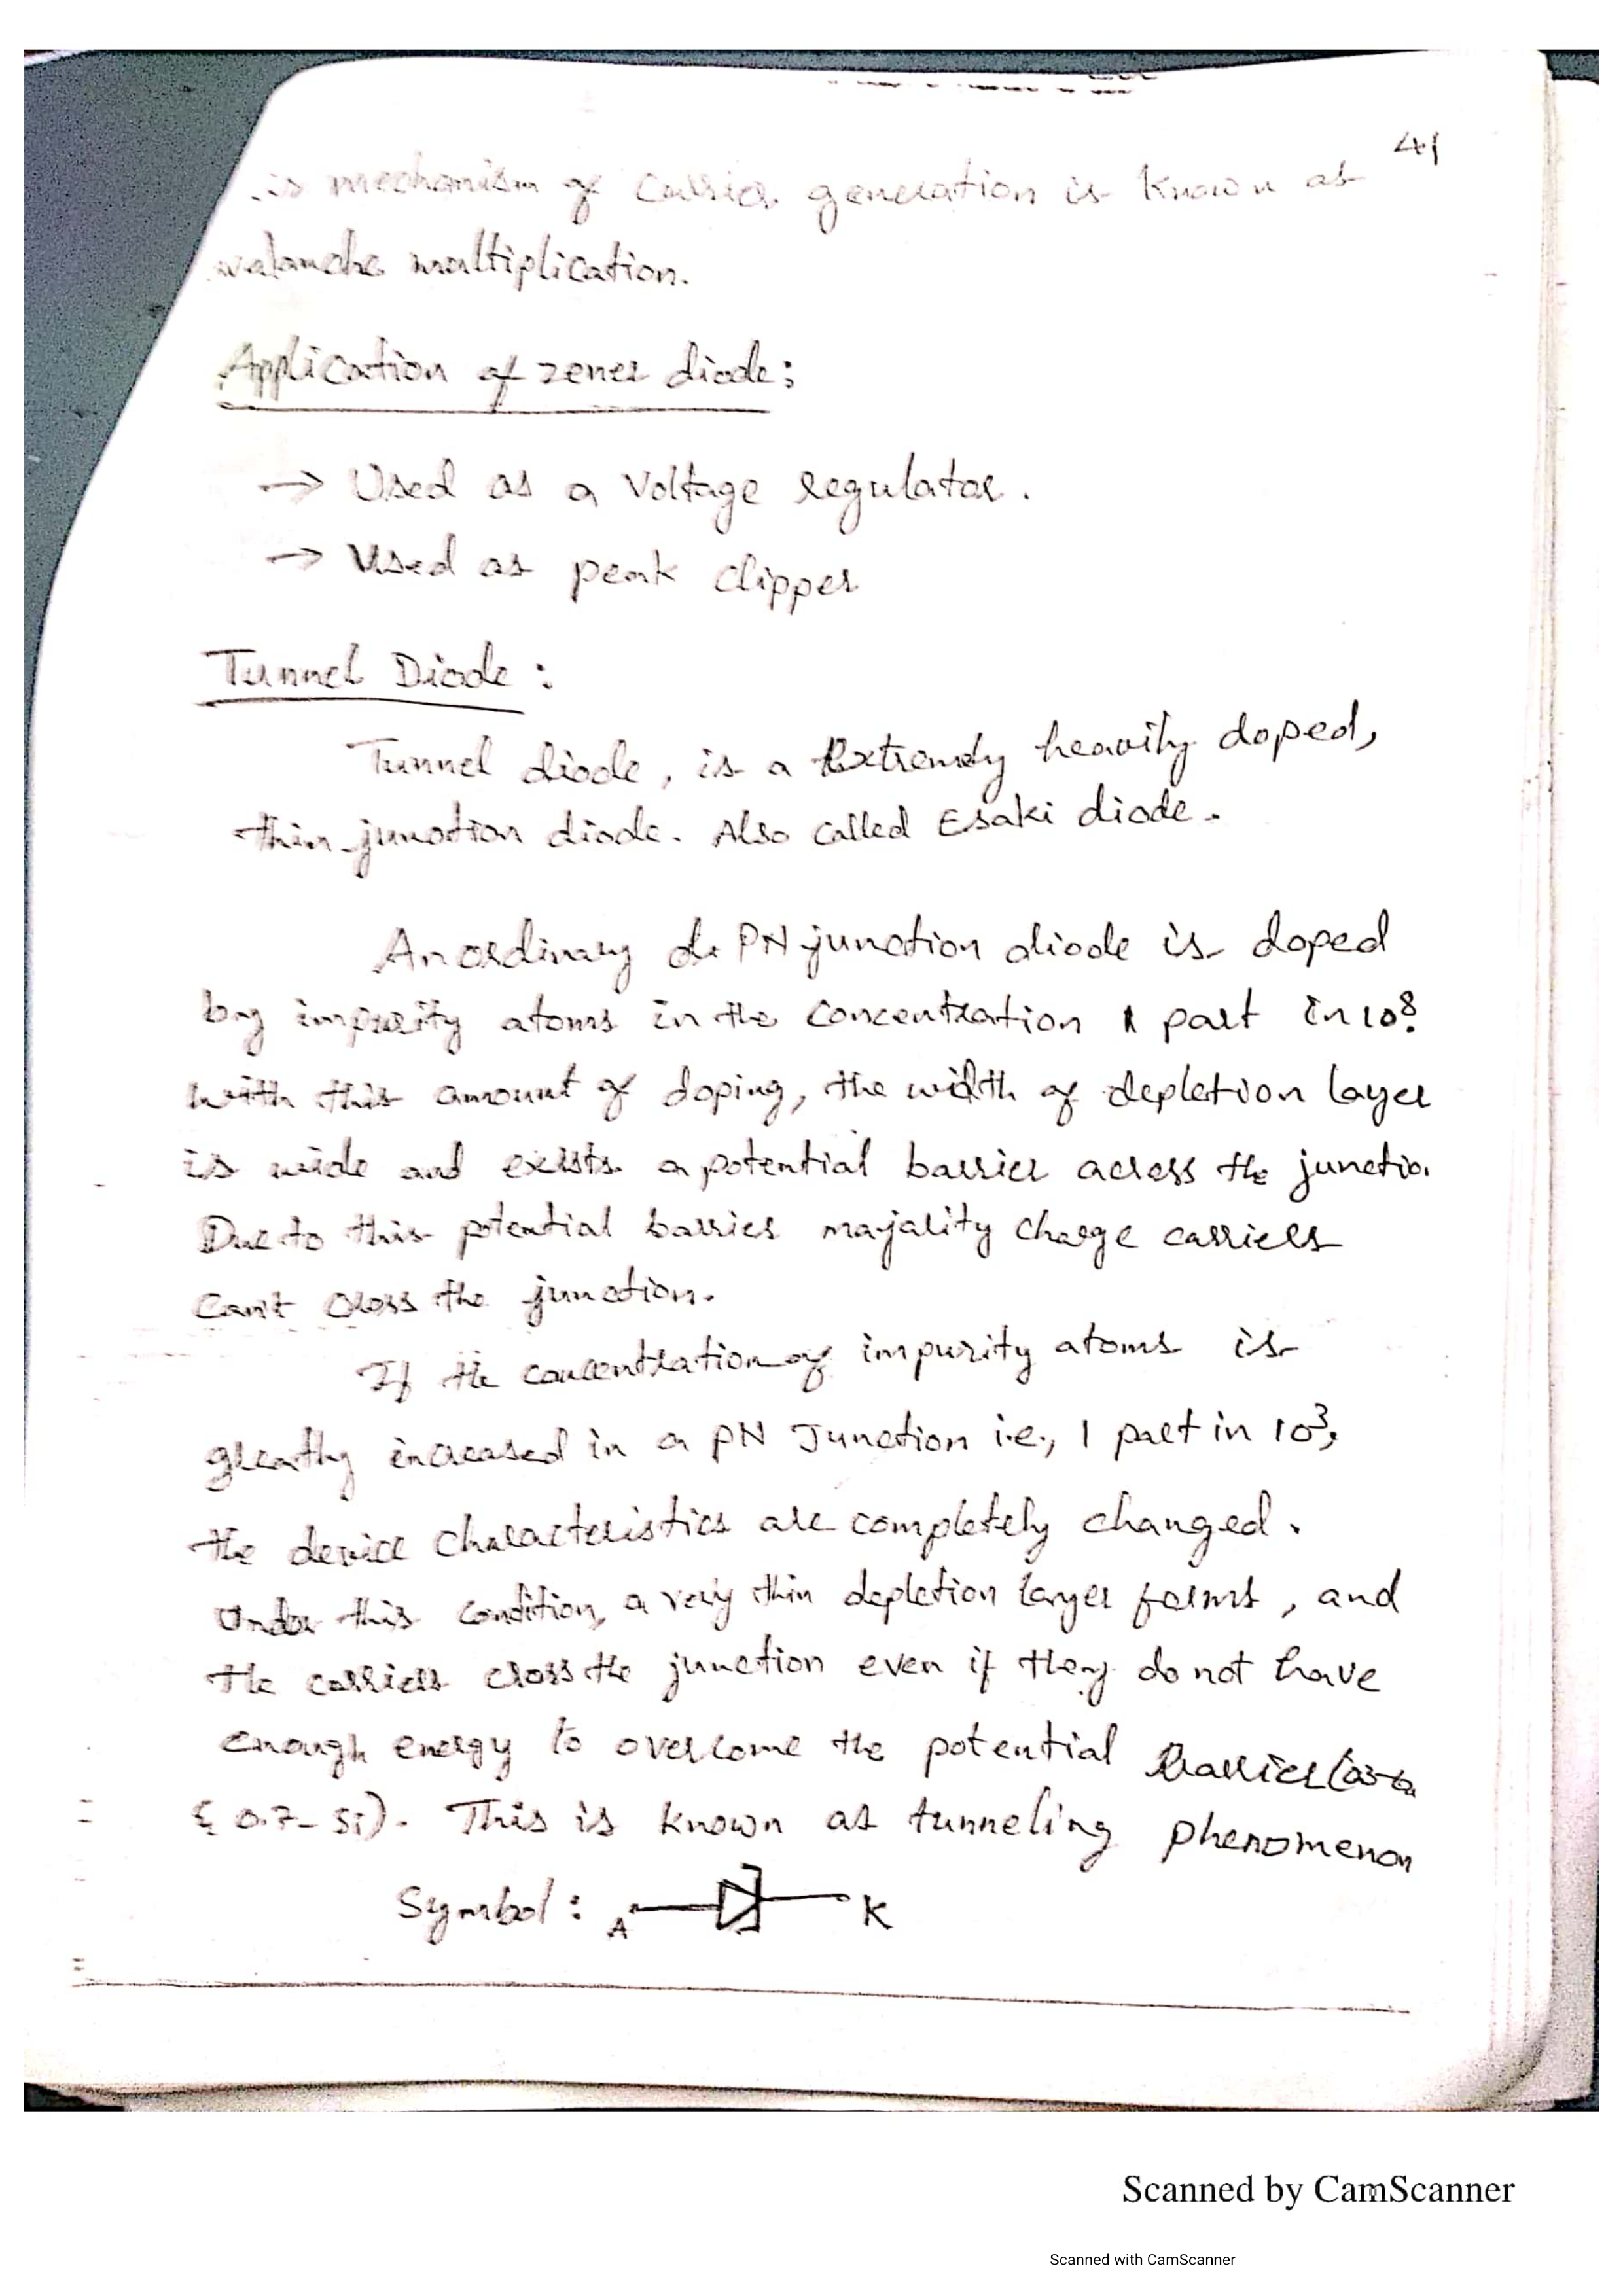 41
is mechanism of carrier generation is known as
avalanche multiplication.
Application of zener diode:
→ Used as a voltage regulator.
→ Used as peak clipper
Tunnel Diode :
Tunnel diode, is a Extremely heavily doped,
thin-junction diode. Also called Esaki diode.
An ordinary PN junction diode is doped
by impurity atoms in the concentration 1 part in 10⁸.
with this amount of doping, the width of depletion layer
is wide and exists a potential barrier across the junctio
Due to this potential barrier majority charge carriers
can't cross the junction.
If the concentration of impurity atoms is
greatly increased in a PN Junction i.e., 1 part in 10³,
the device characteristics are completely changed.
Under this condition, a very thin depletion layer forms, and
the carriers cross the junction even if they do not have
enough energy to overcome the potential barrier (0.3-G
& 0.7-Si). This is known as tunneling phenomenon
Symbol : A K
Scanned by CamScanner
Scanned with CamScanner